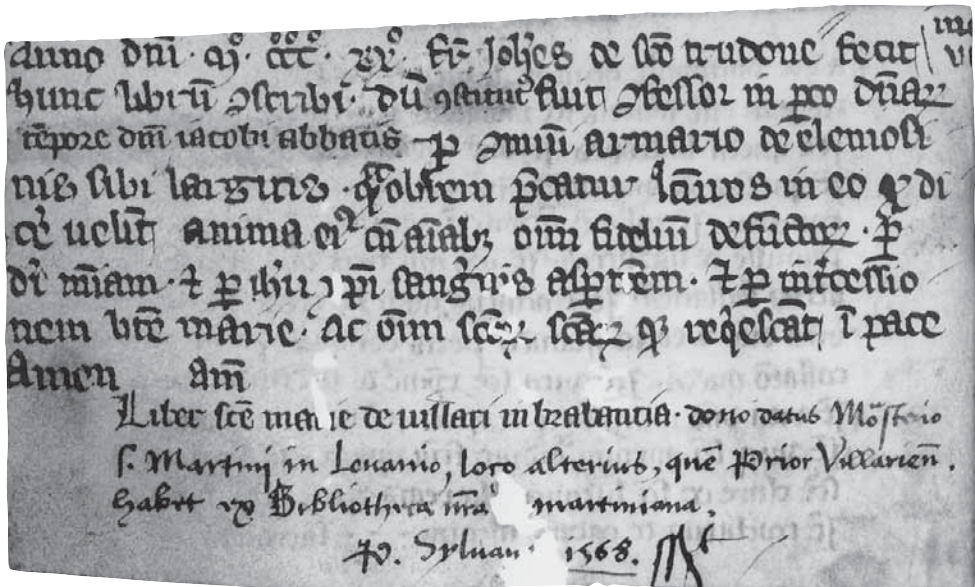 Anno dn̄i · mº · cccº · xxº · fr̄ · Joh̄es de sc̄o trudone fecit
hunc librū ꝯscribi · dū ꝯstitutꝰ fuit ꝯfessor in p̱co dn̄aꝝ
tēpore dn̄i iacobi abbatis ꝑ ꝯmuni armario de elemosi
nis sibi largitis · q̄obrem p̄catur in eo ꝙ di
cer̄ uelīt anima eiꝰ cū aīabꝫ om̄i fideliū defūctoꝝ · ꝑ
di m̄iam · ⁊ ꝑ ihū xp̄i sangͥs asp̱ēm · ⁊ ꝑ int̄cessio
nem bt̄e marie · ac om̄i sc̄oꝝ sc̄aꝝ qꝫ reqͥescāt ī pace
Amen am̄
Liber sc̄e marie de uillari in brabantia · dono datus Mōsterio
s. Martinj in Louanio, loco alterius, quē Prior Villarieñ .
habet ex Bibliotheca nr̄a martiniana.
P. Syluan · 1568.